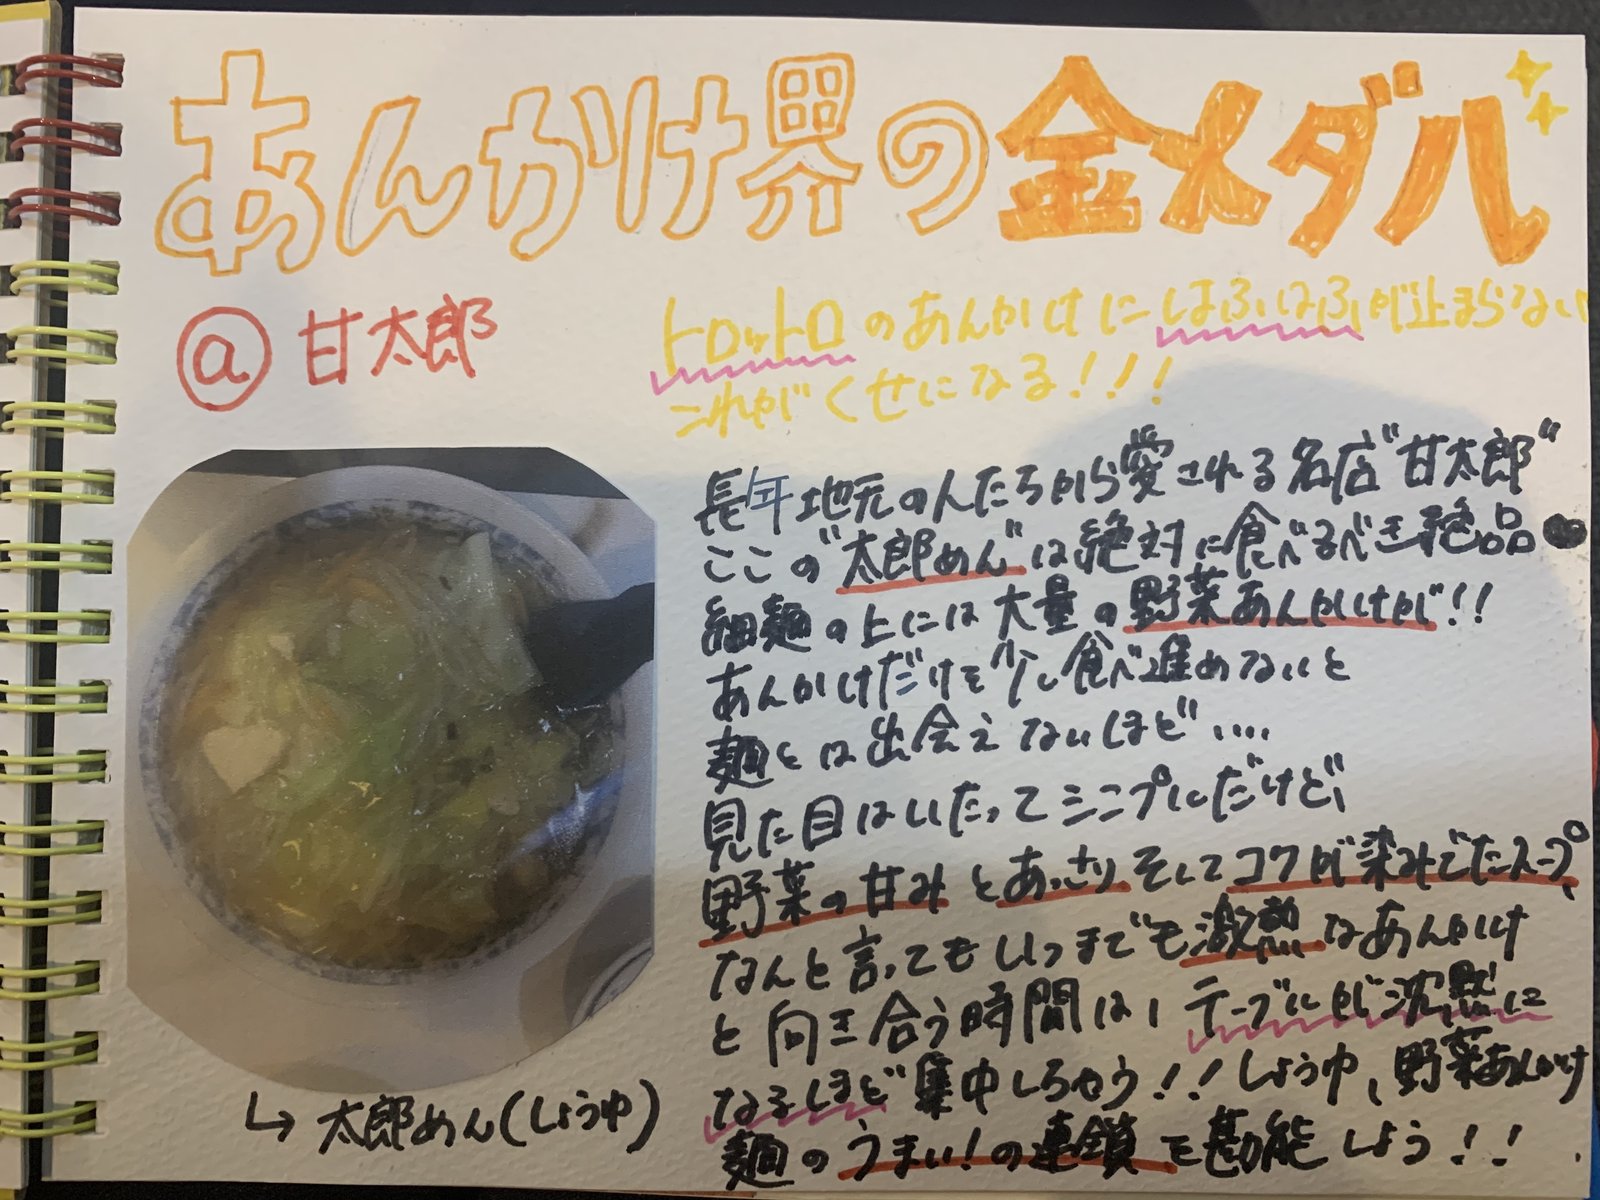 あんかけ界の金メダル
@甘太郎
トロットロのあんかけにはふはふが止まらない
これがくせになる!!!
長年地元の人たちから愛される名店"甘太郎"
ここの"太郎めん"は絶対に食べるべき絶品
細麺の上には大量の野菜あんかけが!!
あんかけだけを少し食べ進めないと
麺とは出会えないほど....
見た目はいたってシンプルだけど、
野菜の甘みとあっさりそしてコクが染みでたスープ、
なんと言ってもいつまでも激熱なあんかけ
と向き合う時間は、テーブルが沈黙に
なるほど集中しちゃう!!しょうゆ、野菜あんかけ
麺のうまい!の連鎖を勘能しよう!!
↳太郎めん(しょうゆ)